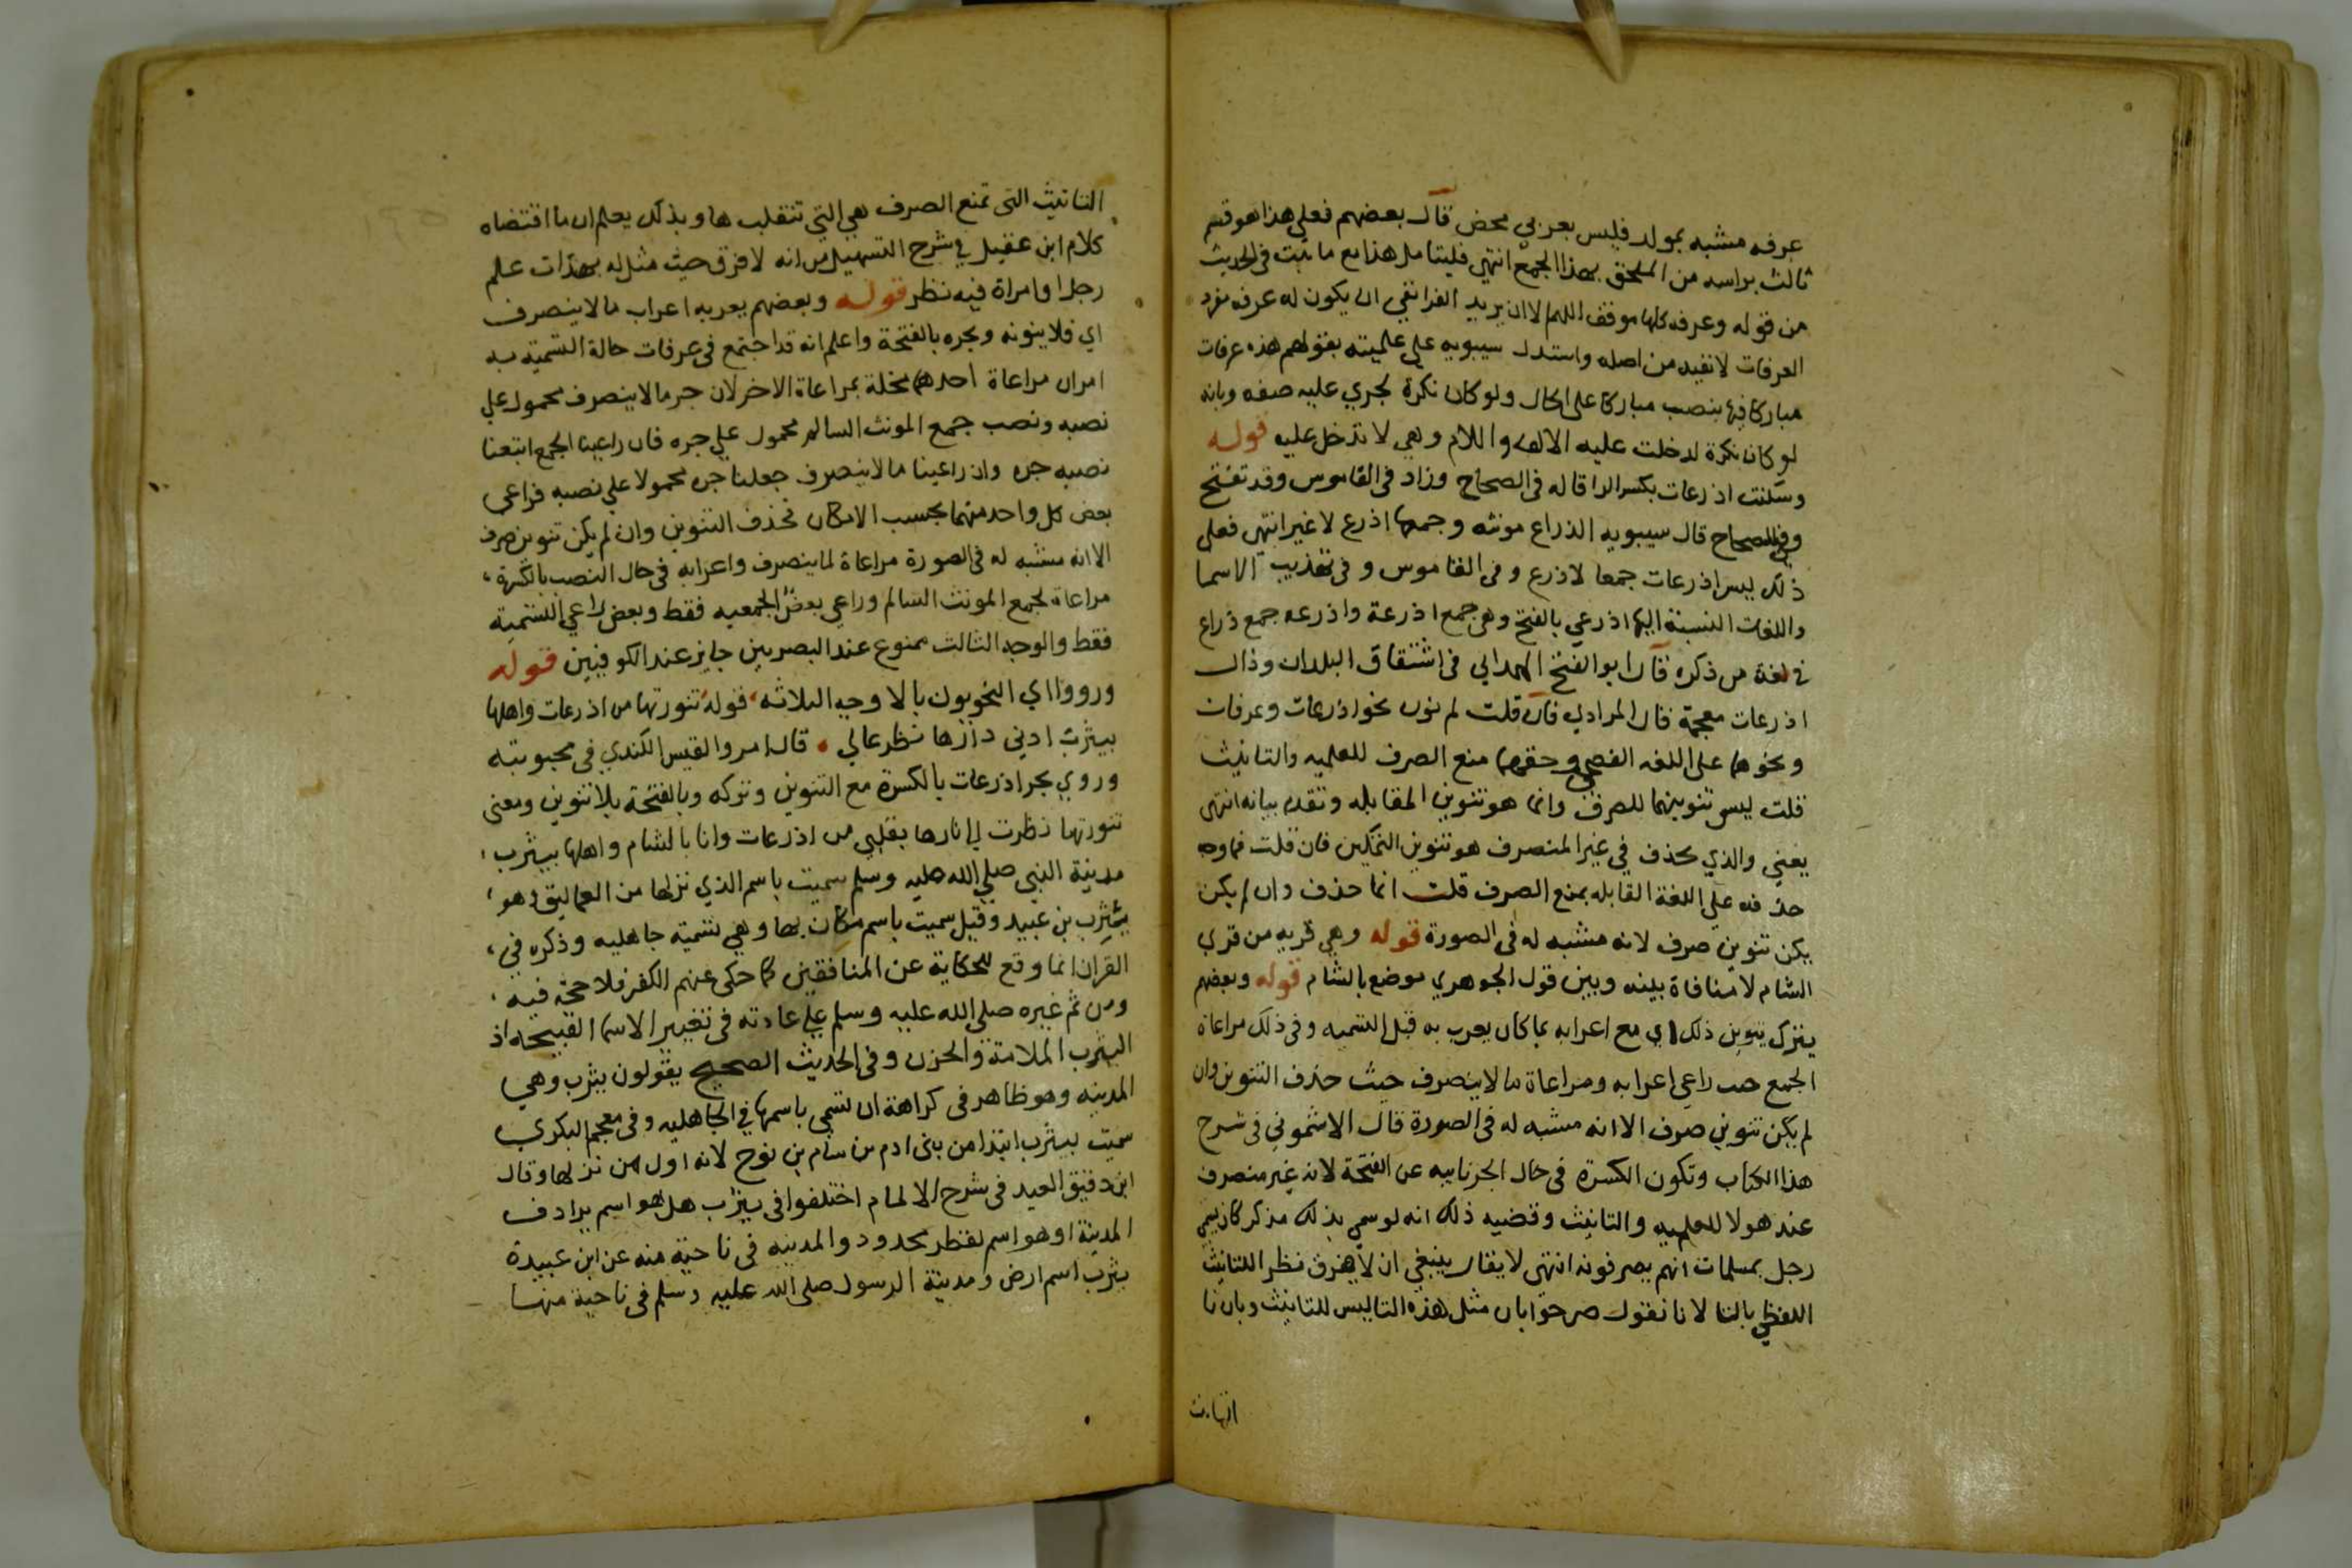 عرفه مشبه بمولد فليس بعربي محض قال بعضهم فعلي هذا هو قسم
ثالث براسه من الملحق بهذا الجمع انتهي فليتامل هذا مع ما ثبت في الحديث
من قوله وعرفه كلها موقف اللهم الا ان يريد الفرا نفي ان يكون له عرفه مفرد
العرفات لا نفيه من اصله واستدل سيبويه علي علميته بقولهم هذه عرفات
مباركا فيها بنصب مباركا علي الحال ولو كان نكرة لجري عليه صفه وبانه
لو كان نكرة لدخلت عليه الالف واللام وهي لا تدخل عليه قوله
وسكنت اذرعات بكسر الرا قاله في الصحاح وزاد في القاموس وقد تفتح
وفي الصحاح قال سيبويه الذراع مونثه وجمعها اذرع لا غير انتهي فعلي
ذلك ليس اذرعات جمعا لاذرع وفي القاموس وفي تهذيب الاسما
واللغات النسبة اليها اذرعي بالفتح وهي جمع اذرعة واذرعه جمع ذراع
في لغة من ذكره قال ابو الفتح الهمداني في اشتقاق البلدان وذال
اذرعات معجمة قال المرادي فان قلت لم نون نحو اذرعات وعرفات
ونحوها علي اللغه الفصحي وحقها منع الصرف للعلميه والتانيث
قلت ليس تنوينهما للصرف وانما هو تنوين المقابله وتقدم بيانه انتهي
يعني والذي يحذف في غير المنصرف هو تنوين التمكين فان قلت فما وجه
حذفه علي اللغة القابله بمنع الصرف قلت انما حذف وان لم يكن
يكن تنوين صرف لانه مشبه له في الصورة قوله وهي قريه من قري
الشام لا منافاة بينه وبين قول الجوهري موضع بالشام قوله وبعضهم
يترك تنوين ذلك اي مع اعرابه بما كان يعرب به قبل التسميه وفي ذلك مراعاة
الجمع حيث راعي اعرابه ومراعاة ما لا ينصرف حيث حذف التنوين وان
لم يكن تنوين صرف الا انه مشبه له في الصورة قال الاشموني في شرح
هذا الكتاب وتكون الكسرة في حال الجر نايبه عن الفتحة لانه غير منصرف
عند هولا للعلميه والتانيث وقضيه ذلك انه لو سمي بذلك مذكر كان يسمي
رجل بمسلمات انهم يصرفونه انتهي لا يقال ينبغي ان لا يصرف نظرا للتانيث
اللفظي بالتا لانا نقول صرحوا بان مثل هذه التا ليس للتانيث وبان تا
التانيث
التانيث التي تمنع الصرف هي التي تنقلب ها وبذلك يعلم ان ما اقتضاه
كلام ابن عقيل في شرح التسهيل من انه لا فرق حيث مثل له بهذات علم
رجل او امراة فيه نظر قوله وبعضهم يعربه اعراب ما لا ينصرف
اي فلا ينونه ويجره بالفتحة واعلم انه قد اجتمع في عرفات حالة التسمية به
امران مراعاة احدهما مخلة بمراعاة الاخر لان جر ما لا ينصرف محمول علي
نصبه ونصب جمع المونث السالم محمول علي جره فان راعينا الجمع اتبعنا
نصبه جره وان راعينا ما لا ينصرف جعلنا جره محمولا علي نصبه فراعي
بعض كل واحد منهما بحسب الامكان فحذف التنوين وان لم يكن تنوين صرف
الا انه مشبه له في الصورة مراعاة لما ينصرف واعرابه في حال النصب بالكسرة
مراعاة لجمع المونث السالم وراعي بعض الجمعيه فقط وبعض راعي التسمية
فقط والوجه الثالث ممنوع عند البصريين جايز عند الكوفيين قوله
ورووا اي النحويون بالاوجه الثلاثه قوله تنورتها من اذرعات واهلها
بيثرب ادني دارها نظر عالي قال امرو القيس الكندي في محبوبته
وروي بجر اذرعات بالكسرة مع التنوين وتركه وبالفتحة بلا تنوين ومعني
تنورتها نظرت الي نارها بقلبي من اذرعات وانا بالشام واهلها بيثرب
مدينة النبي صلي الله عليه وسلم سميت باسم الذي نزلها من العماليق وهو
يثرب بن عبيد وقيل سميت باسم مكان بها وهي تسمية جاهليه وذكره في
القران انما وقع لحكاية عن المنافقين كما حكي عنهم الكفر فلا حجة فيه
ومن ثم غيره صلي الله عليه وسلم علي عادته في تغيير الاسما القبيحه اذ
اليثرب الملامة والحزن وفي الحديث الصحيح يقولون يثرب وهي
المدينه وهو ظاهر في كراهة ان تسمي باسمها في الجاهليه وفي معجم البكري
سميت بيثرب ابتدا من بني ادم من سام بن نوح لانه اول من نزلها وقال
ابن دقيق العيد في شرح الالمام اختلفوا في يثرب هل هو اسم يرادف
المدينة او هو اسم لقطر محدود والمدينه في ناحية منه عن ابن عبيدة
يثرب اسم ارض ومدينة الرسول صلي الله عليه وسلم في ناحية منها